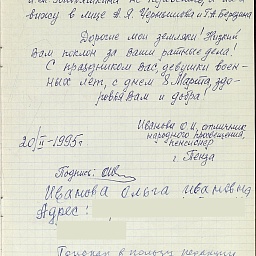 вижу в лице А.Я. Чернышова и Т.А. Бердина
Дорогие мои земляки! Низкий
Вам поклон за Ваши ратные дела!
С праздником Вас, девушки воен-
ных лет, с днем 8 Марта, здо-
ровья Вам и добра!
Иванова О.И, отличник
народного просвещения,
пенсионер
г. Пенза
20/II-1995г
Подпись:
Иванова Ольга Ивановна
Адрес: